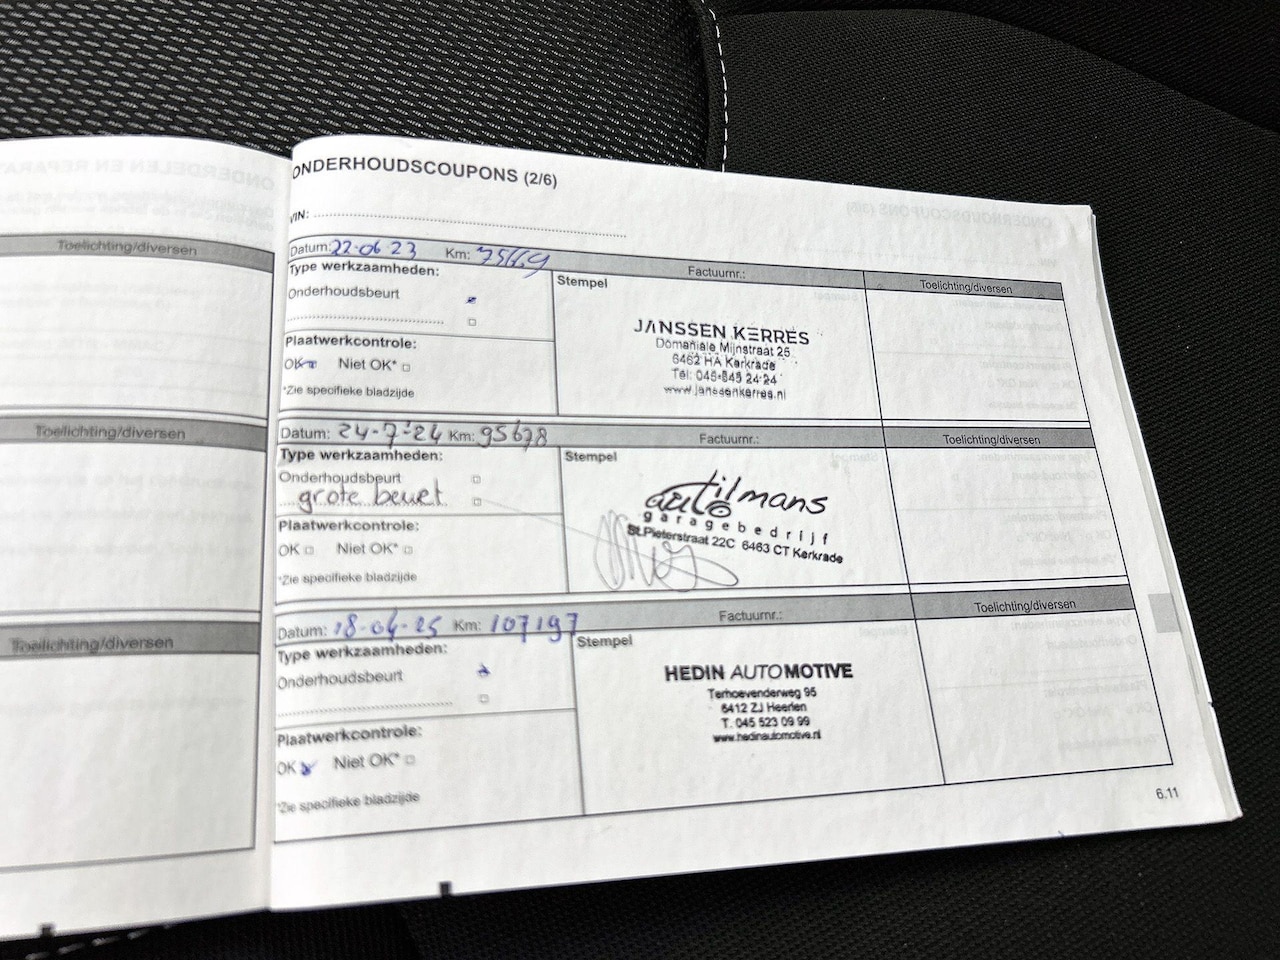 Toelichting/diversen
Toelichting/diversen
Toelichting/diversen
ONDERHOUDSCOUPONS (2/6)
VIN:
Datum: 22-06-23 Km: Factuurnr.: Toelichting/diversen
Type werkzaamheden:
Stempel
Onderhoudsbeurt
Plaatwerkcontrole:
OK Niet OK*
*Zie specifieke bladzijde
JANSSEN KERRES
Domaniale Mijnstraat 25
6462 HA Kerkrade
Tel: 045-545 24 24
www.janssenkerres.nl
Datum: 24-7-24 Km: 95678 Factuurnr.: Toelichting/diversen
Type werkzaamheden:
Stempel
Onderhoudsbeurt
grote beurt
Plaatwerkcontrole:
OK Niet OK*
*Zie specifieke bladzijde
auto tilmans
garagebedrijf
St.Pieterstraat 22C 6463 CT Kerkrade
Datum: 18-04-25 Km: 107197 Factuurnr.: Toelichting/diversen
Type werkzaamheden:
Stempel
Onderhoudsbeurt
Plaatwerkcontrole:
OK Niet OK*
*Zie specifieke bladzijde
HEDIN AUTOMOTIVE
Terhoevenderweg 95
6412 ZJ Heerlen
T. 045 523 09 99
www.hedinautomotive.nl
6.11